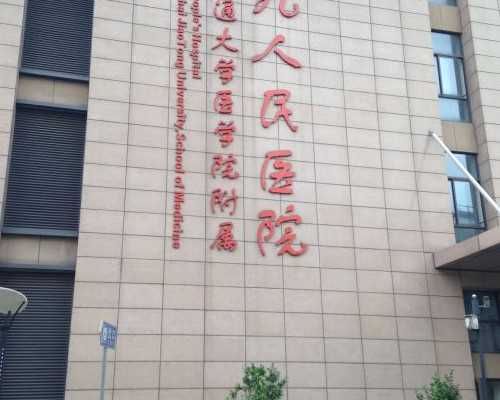 九人民医院
通大学医学院附属
ople's Hospital
hai Jiao Tong University, School of Medicine